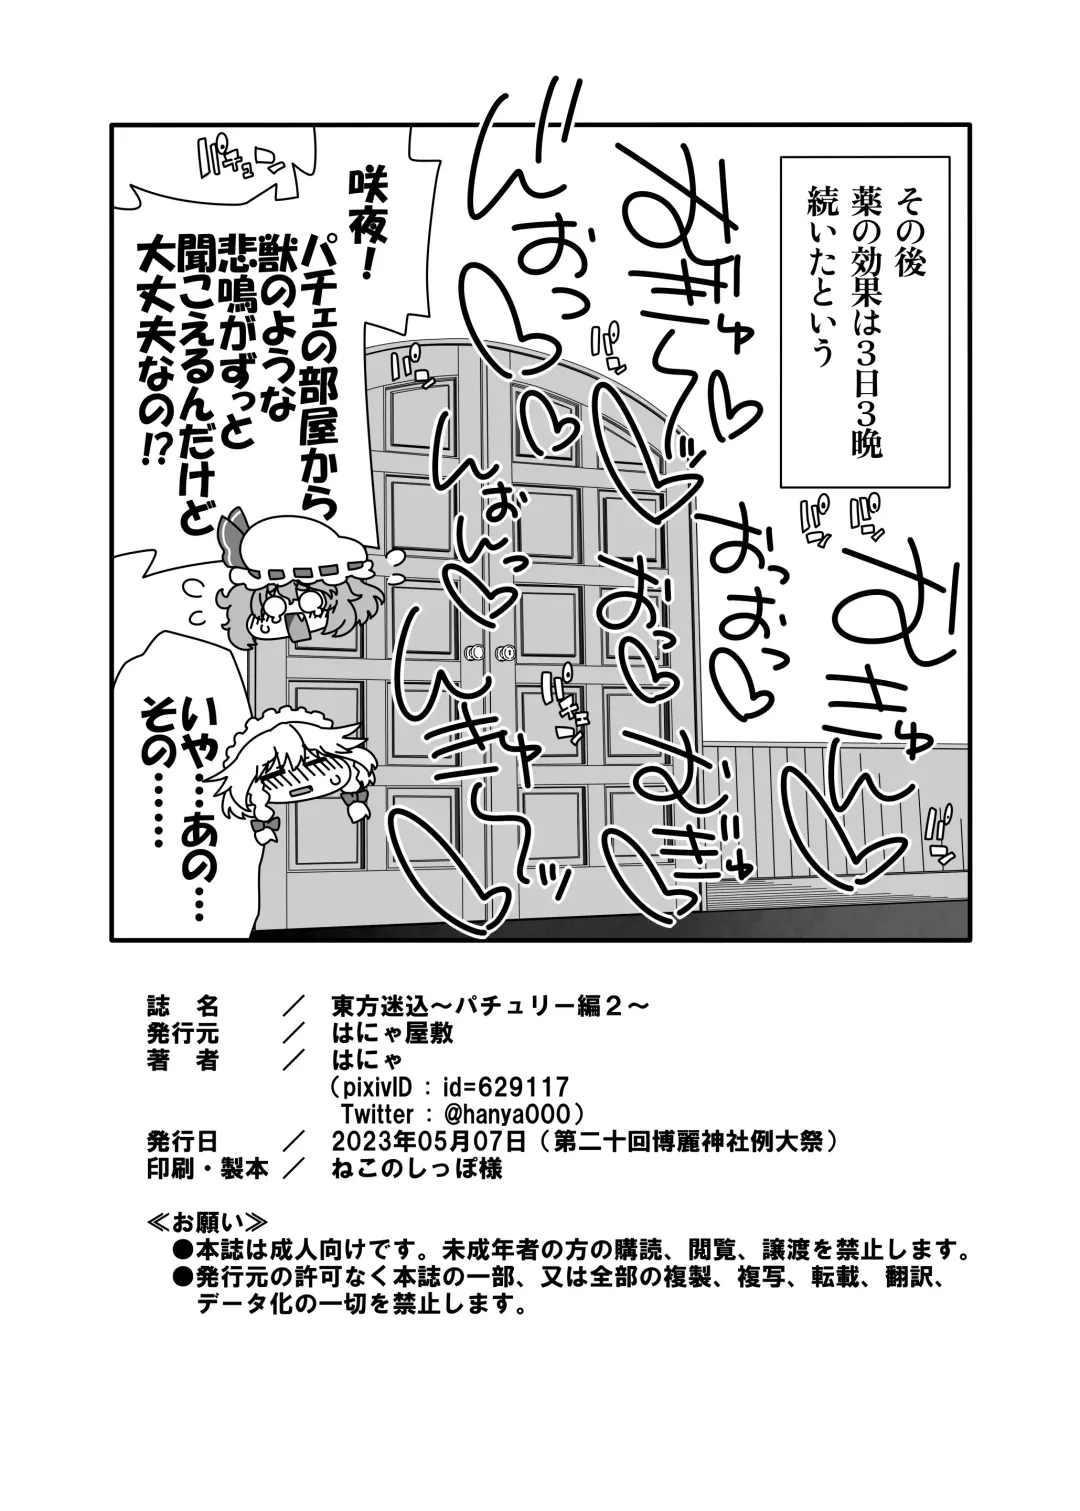 その後
薬の効果は３日３晩
続いたという
んおっ
おぎゅ
パン
パン
パン
パン
おっおっ
おぎゅ
おっ
おぎゅ
んおんっ
んぎゅ
パチュン
パチュン
パン
咲夜！
パチェの部屋から
獣のような
悲鳴がずっと
聞こえるんだけど
大丈夫なの⁉
いや……あの…
その………
誌　名　／　東方迷込～パチュリー編２～
発行元　／　はにゃ屋敷
著　者　／　はにゃ
（pixivID : id=629117
Twitter : @hanya000）
発行日　／　2023年05月07日（第二十回博麗神社例大祭）
印刷・製本　／　ねこのしっぽ様
≪お願い≫
●本誌は成人向けです。未成年者の方の購読、閲覧、譲渡を禁止します。
●発行元の許可なく本誌の一部、又は全部の複製、複写、転載、翻訳、
データ化の一切を禁止します。